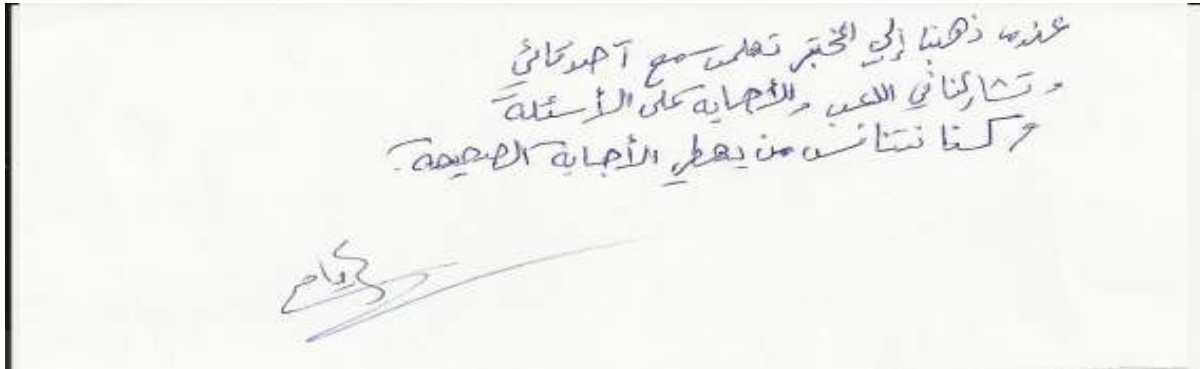 عندما ذهبنا إلي المختبر تعلمت مع أصدقائي
و تشاركنا في اللعب والأجابه على الأسئلة
وكنا نتنافس من يعطي الأجابة الصحيحة.